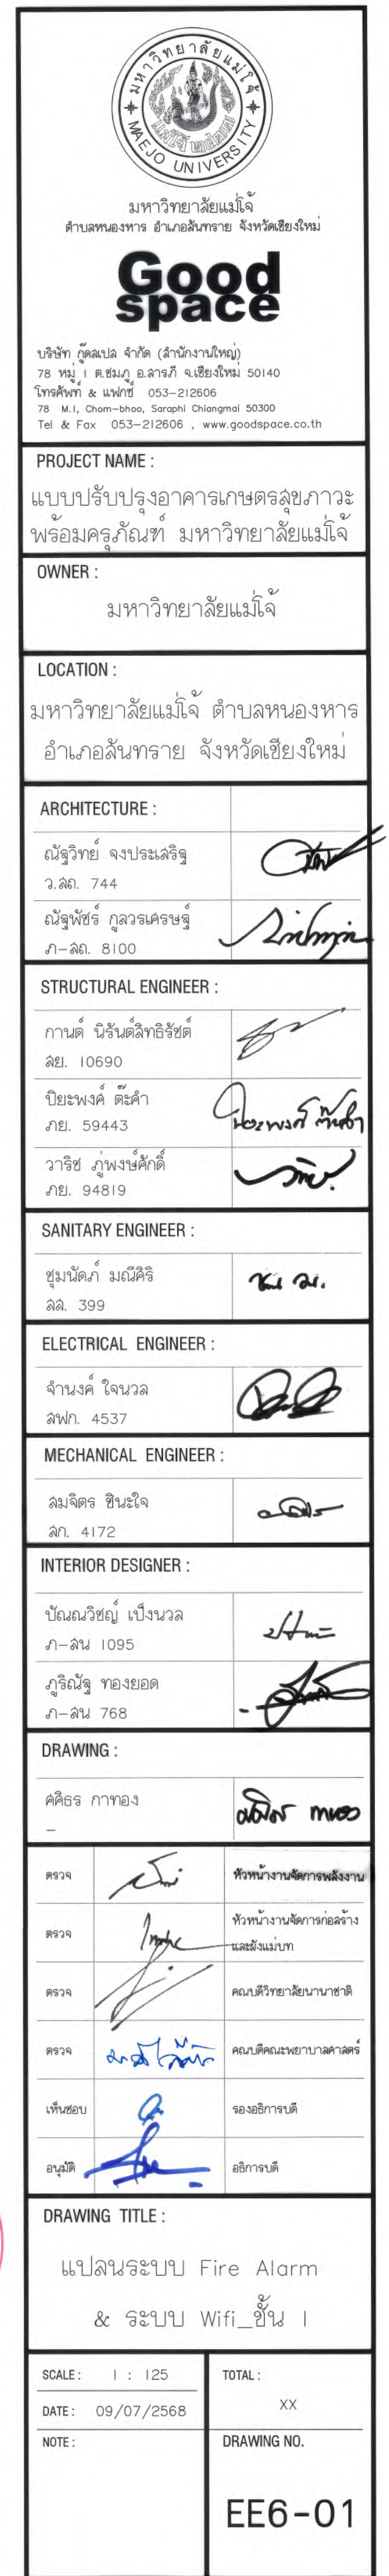 มหาวิทยาลัยแม่โจ้
MAEJO UNIVERSITY
มหาวิทยาลัยแม่โจ้
ตำบลหนองหาร อำเภอสันทราย จังหวัดเชียงใหม่
Good
space
บริษัท กู๊ดสเปส จำกัด (สำนักงานใหญ่)
78 หมู่ 1 ต.ชมภู อ.สารภี จ.เชียงใหม่ 50140
โทรศัพท์ & แฟกซ์ 053-212606
78 M.1, Chom-bhoo, Saraphi Chiangmai 50300
Tel & Fax 053-212606 , www.goodspace.co.th
PROJECT NAME :
แบบปรับปรุงอาคารเกษตรสุขภาวะ
พร้อมครุภัณฑ์ มหาวิทยาลัยแม่โจ้
OWNER :
มหาวิทยาลัยแม่โจ้
LOCATION :
มหาวิทยาลัยแม่โจ้ ตำบลหนองหาร
อำเภอสันทราย จังหวัดเชียงใหม่
ARCHITECTURE :
ณัฐวิทย์ จงประเสริฐ
ว.สถ. 744
ณัฐพัชร์ กุลวรเศรษฐ์
ภ-สถ. 8100
STRUCTURAL ENGINEER :
กานต์ นิรันต์สิทธิรัชต์
สย. 10690
ปิยะพงค์ ต๊ะคำ
ภย. 59443
วาริช ภู่พงษ์ศักดิ์
ภย. 94819
SANITARY ENGINEER :
ชุมนัดภ์ มณีศิริ
สส. 399
ELECTRICAL ENGINEER :
จำนงค์ ใจนวล
สฟก. 4537
MECHANICAL ENGINEER :
สมจิตร ชินะใจ
สก. 4172
INTERIOR DESIGNER :
ปัณณวิชญ์ เป็งนวล
ภ-สน 1095
ภูริณัฐ ทองยอด
ภ-สน 768
DRAWING :
ศศิธร กาทอง
-
ตรวจ หัวหน้างานจัดการพลังงาน
ตรวจ หัวหน้างานจัดการก่อสร้าง
และผังแม่บท
ตรวจ คณบดีวิทยาลัยนานาชาติ
ตรวจ คณบดีคณะพยาบาลศาสตร์
เห็นชอบ รองอธิการบดี
อนุมัติ อธิการบดี
DRAWING TITLE :
แปลนระบบ Fire Alarm
& ระบบ Wifi_ชั้น 1
SCALE : 1 : 125
TOTAL :
XX
DATE : 09/07/2568
NOTE :
DRAWING NO.
EE6-01